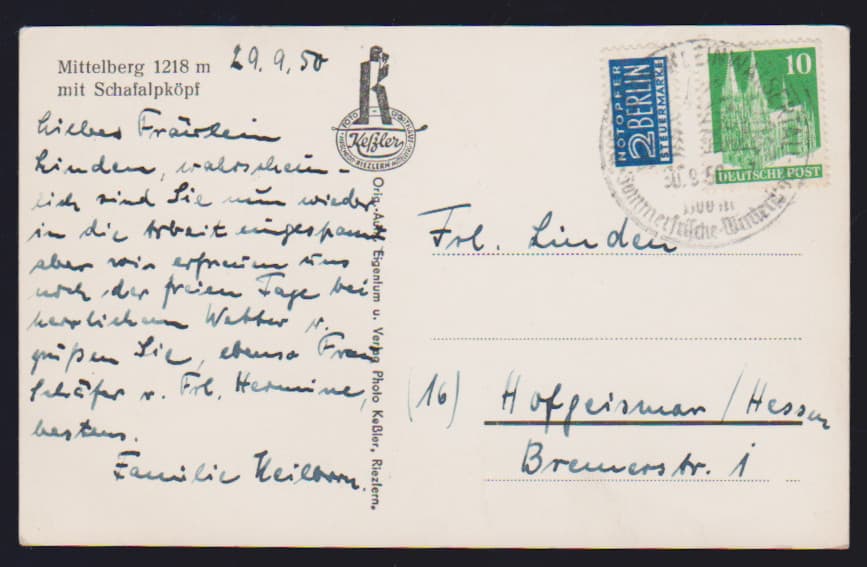 Mittelberg 1218 m
mit Schafalpköpf
29.9.50
Liebes Fräulein
Linden, wahrschein-
lich sind Sie nun wieder
in die Arbeit eingespannt
aber wir erfreuen uns
noch der freien Tage bei
herrlichem Wetter u.
grüßen Sie, ebenso Frau
Schäfer u. Frl. Hermine,
bestens.
Familie Heilborn.
Keßler
Orig.-Aufn. Eigentum u. Verlag Photo Keßler, Riezlern.
NOTOPFER
2 BERLIN
STEUERMARKE
10
DEUTSCHE POST
30.9.50
Sommerfrische-Winter
Frl. Linden
(16) Hofgeismar/Hessen
Bremerstr. 1